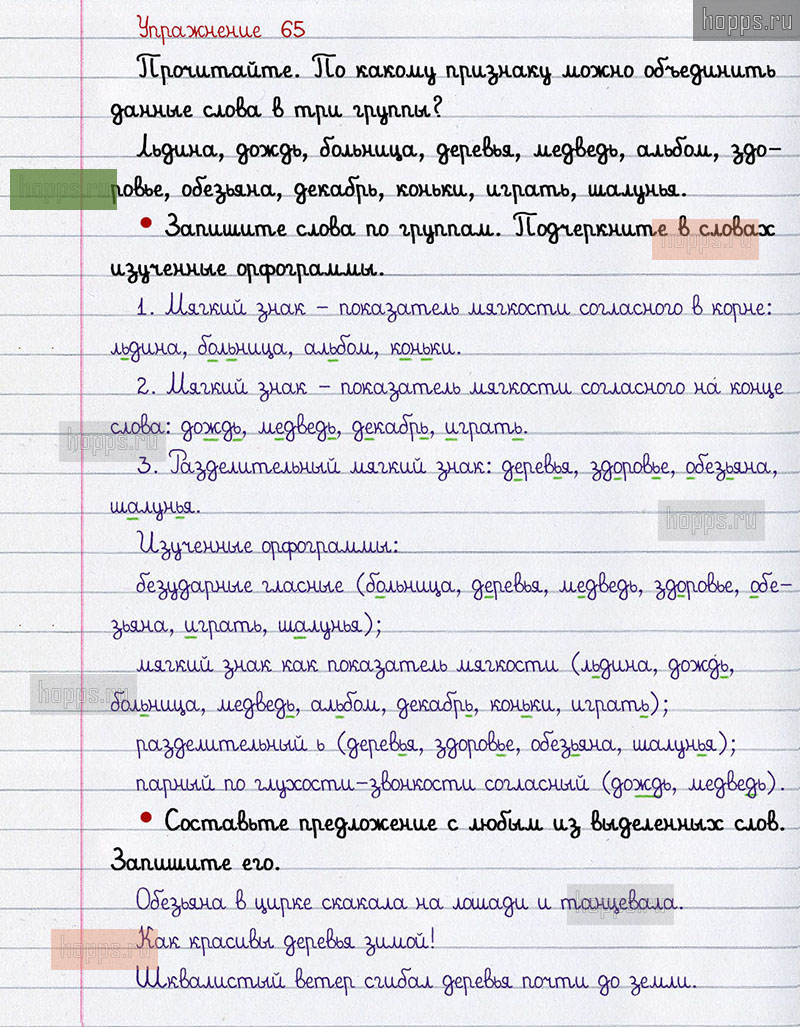 hopps.ru
Упражнение 65
Прочитайте. По какому признаку можно объединить
данные слова в три группы?
Льдина, дождь, больница, деревья, медведь, альбом, здо-
hopps.ru
ровье, обезьяна, декабрь, коньки, играть, шалунья.
• Запишите слова по группам. Подчеркните в словах
hopps.ru
изученные орфограммы.
1. Мягкий знак – показатель мягкости согласного в корне:
льдина, больница, альбом, коньки.
2. Мягкий знак – показатель мягкости согласного на конце
слова: дождь, медведь, декабрь, играть.
hopps.ru
3. Разделительный мягкий знак: деревья, здоровье, обезьяна,
шалунья.
hopps.ru
Изученные орфограммы:
безударные гласные (больница, деревья, медведь, здоровье, обе-
зьяна, играть, шалунья);
мягкий знак как показатель мягкости (льдина, дождь,
hopps.ru
больница, медведь, альбом, декабрь, коньки, играть);
разделительный ь (деревья, здоровье, обезьяна, шалунья);
парный по глухости-звонкости согласный (дождь, медведь).
• Составьте предложение с любым из выделенных слов.
Запишите его.
Обезьяна в цирке скакала на лошади и танцевала.
hopps.ru
Как красивы деревья зимой!
hopps.ru
Шквалистый ветер сгибал деревья почти до земли.